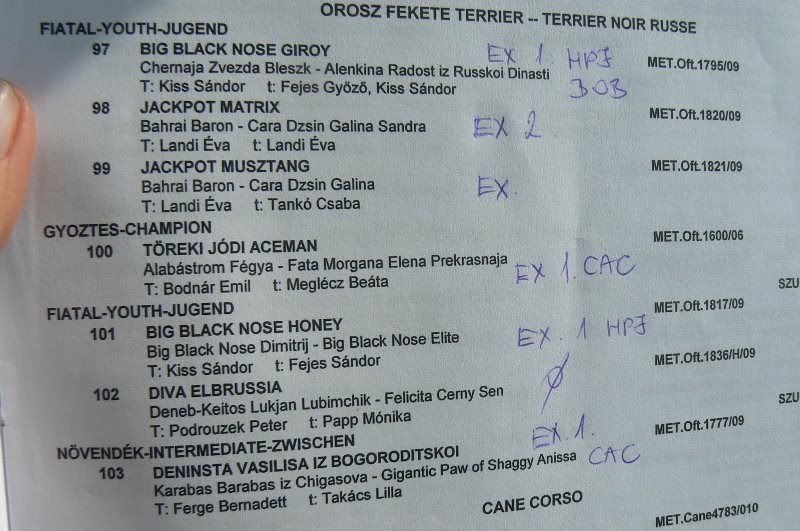 OROSZ FEKETE TERRIER -- TERRIER NOIR RUSSE
FIATAL-YOUTH-JUGEND
97 BIG BLACK NOSE GIROY EX 1. HPJ MET.Oft.1795/09
Chernaja Zvezda Bleszk - Alenkina Radost iz Russkoi Dinasti
T: Kiss Sándor t: Fejes Győző, Kiss Sándor BOB
98 JACKPOT MATRIX MET.Oft.1820/09
Bahrai Baron - Cara Dzsin Galina Sandra EX 2.
T: Landi Éva t: Landi Éva
99 JACKPOT MUSZTANG MET.Oft.1821/09
Bahrai Baron - Cara Dzsin Galina EX.
T: Landi Éva t: Tankó Csaba
GYOZTES-CHAMPION
100 TÖREKI JÓDI ACEMAN MET.Oft.1600/06
Alabástrom Fégya - Fata Morgana Elena Prekrasnaja EX 1. CAC
T: Bodnár Emil t: Meglécz Beáta SZU
FIATAL-YOUTH-JUGEND
101 BIG BLACK NOSE HONEY MET.Oft.1817/09
Big Black Nose Dimitrij - Big Black Nose Elite EX. 1 HPJ
T: Kiss Sándor t: Fejes Sándor
102 DIVA ELBRUSSIA MET.Oft.1836/H/09
Deneb-Keitos Lukjan Lubimchik - Felicita Cerny Sen
T: Podrouzek Peter t: Papp Mónika SZU
NÖVENDÉK-INTERMEDIATE-ZWISCHEN EX 1.
103 DENINSTA VASILISA IZ BOGORODITSKOI MET.Oft.1777/09
Karabas Barabas iz Chigasova - Gigantic Paw of Shaggy Anissa CAC
T: Ferge Bernadett t: Takács Lilla
CANE CORSO
MET.Cane4783/010